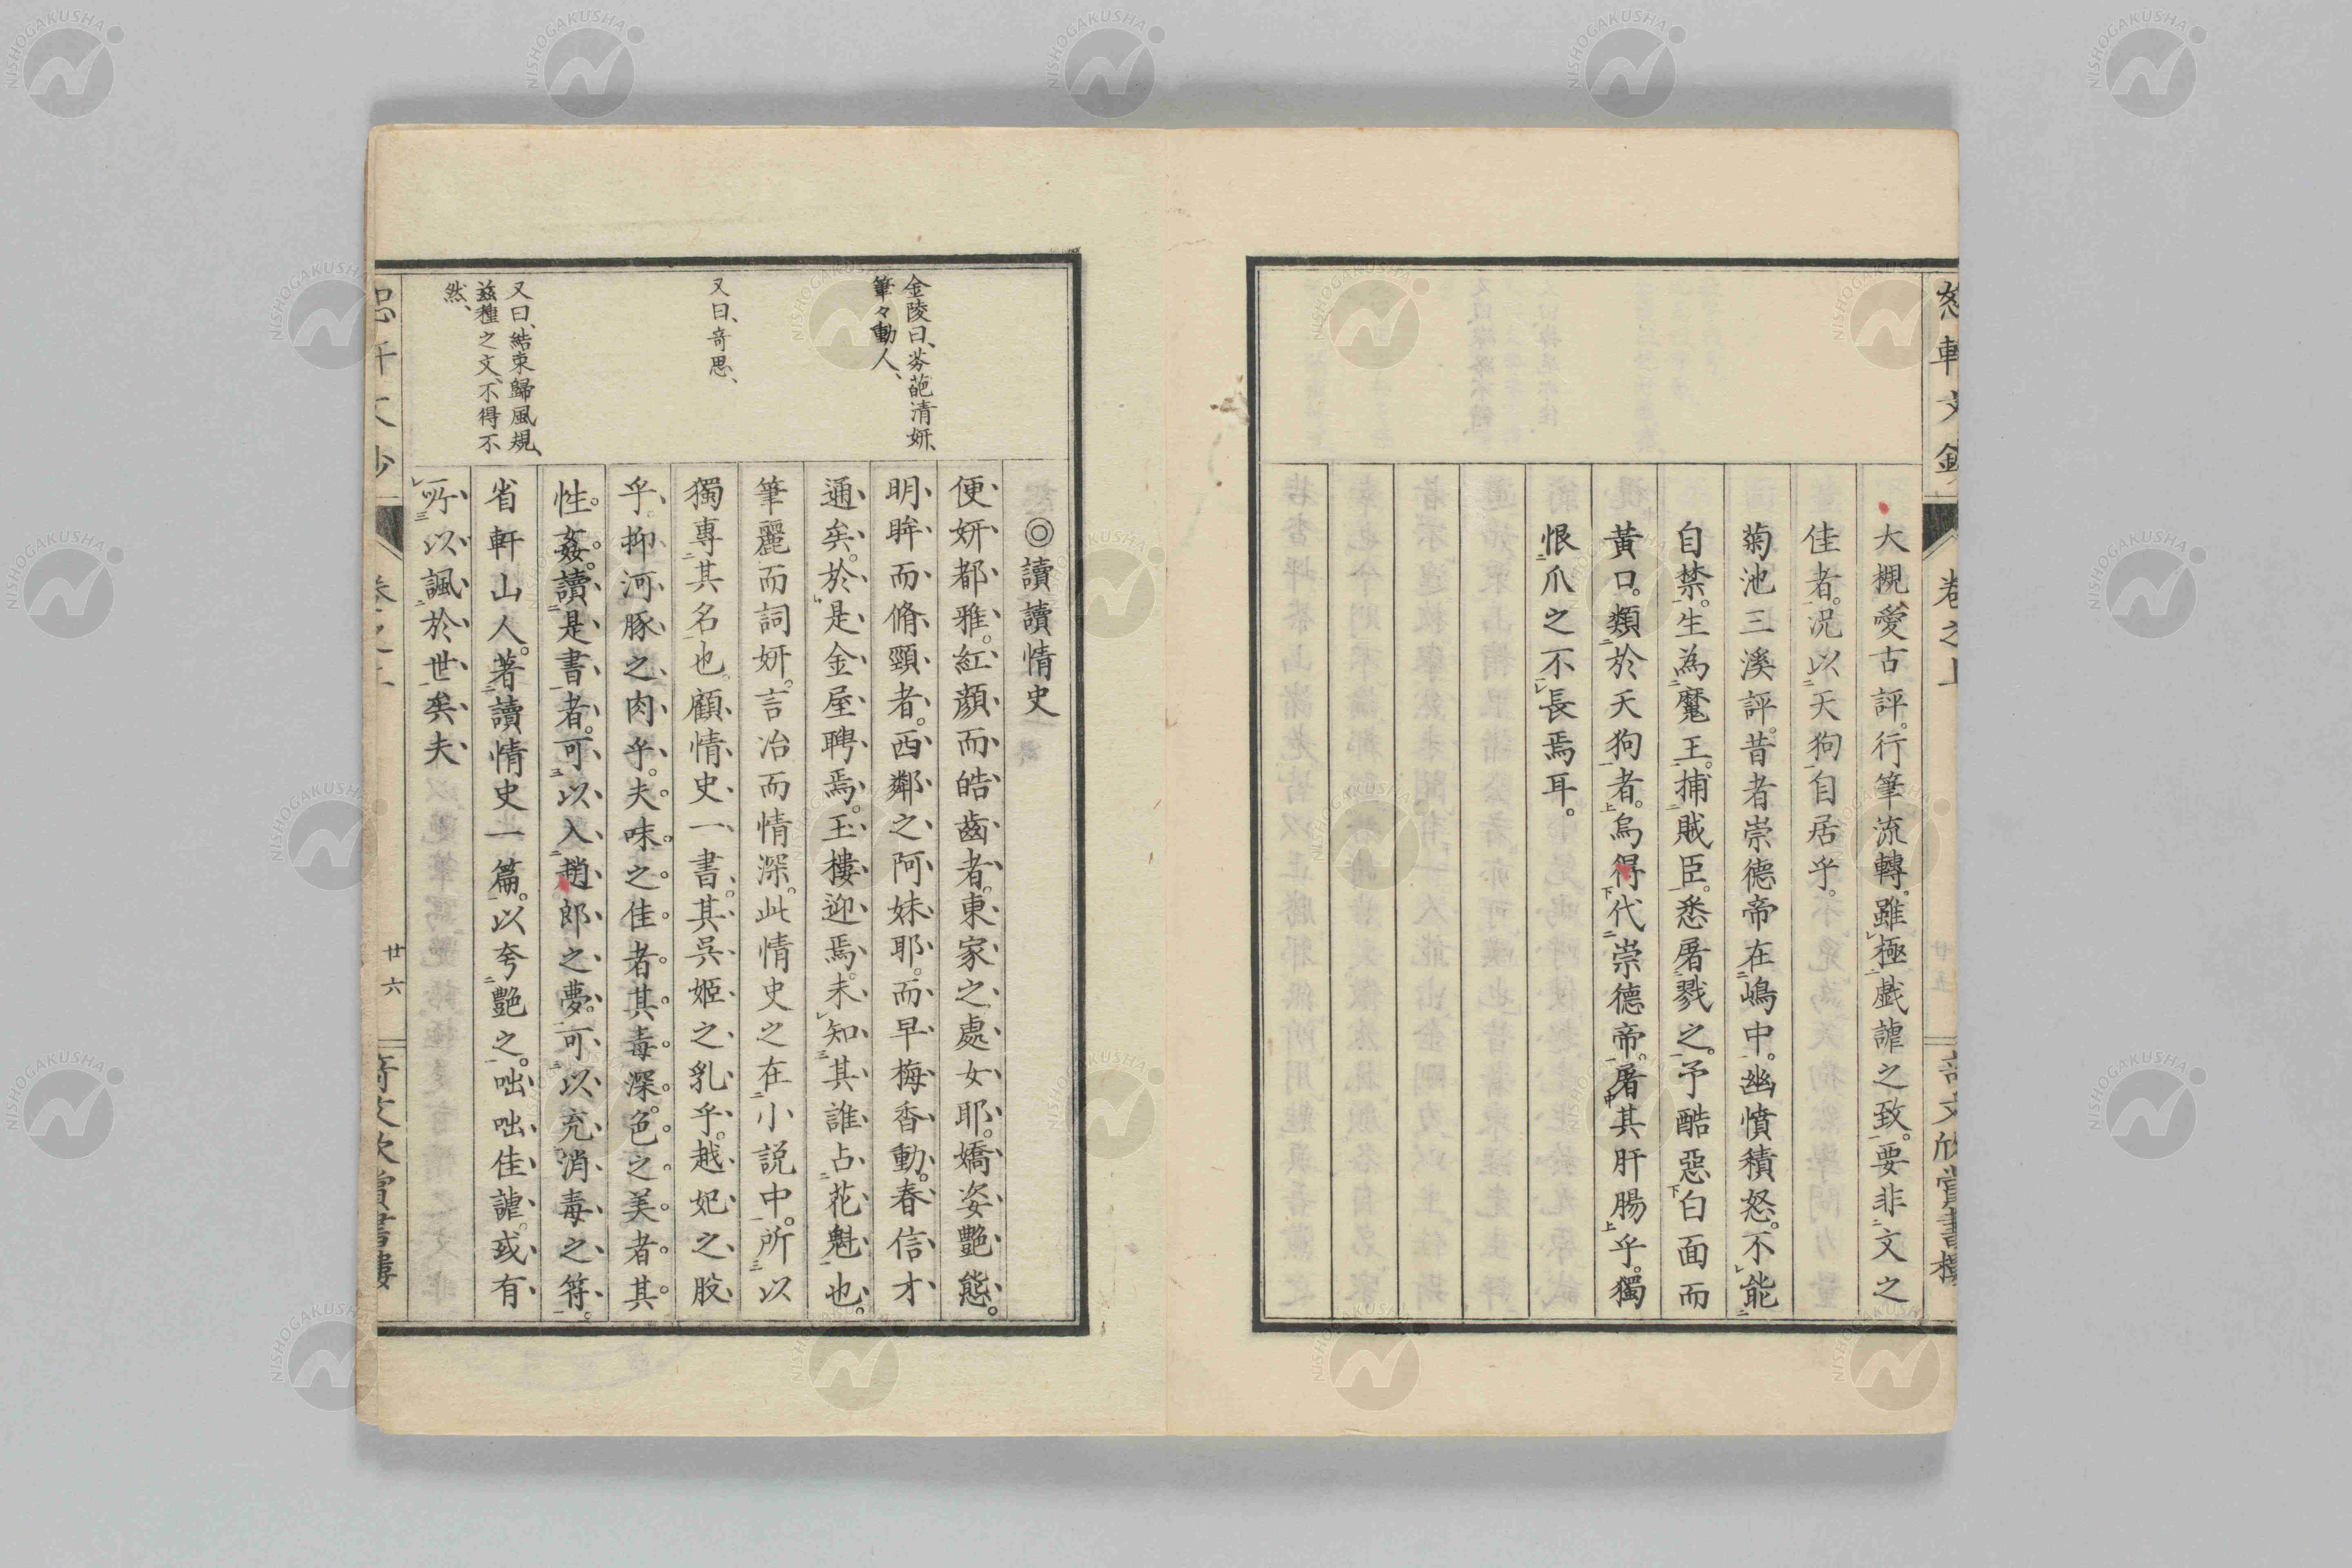 大槻愛古評。行筆流轉。雖極戲謔之致。要非文之
佳者。况以天狗自居乎。
菊池三溪評。昔者崇德帝在嶋中。幽憤積怒。不能
自禁。生為魔王。捕賊臣。悉屠戮之。予酷惡白面而
黃口。類於天狗者。烏得代崇德帝。屠其肝腸乎。獨
恨爪之不長焉耳。
卷之上
◎讀讀情史
便妍都雅。紅顏而皓齒者。東家之處女耶。嬌姿艷態。
明眸而脩頸者。西鄰之阿妹耶。而早梅香動。春信才
通矣。於是金屋聘焉。玉樓迎焉。未知其誰占花魁也。
筆麗而詞妍。言冶而情深。此情史之在小説中。所以
獨專其名也。顧情史一書。其吳姬之乳乎。越妃之股
乎。抑河豚之肉乎。夫味之佳者。其毒深。色之美者。其
性姦。讀是書者。可以入趙郎之夢。可以充消毒之符。
省軒山人。著讀情史一篇。以夸艷之。咄咄佳謔。或有
所以諷於世矣夫
金陵曰、芬葩清妍、
筆々動人、
又曰、奇思、
又曰、結束歸風規、
茲種之文、不得不
然、
廿六